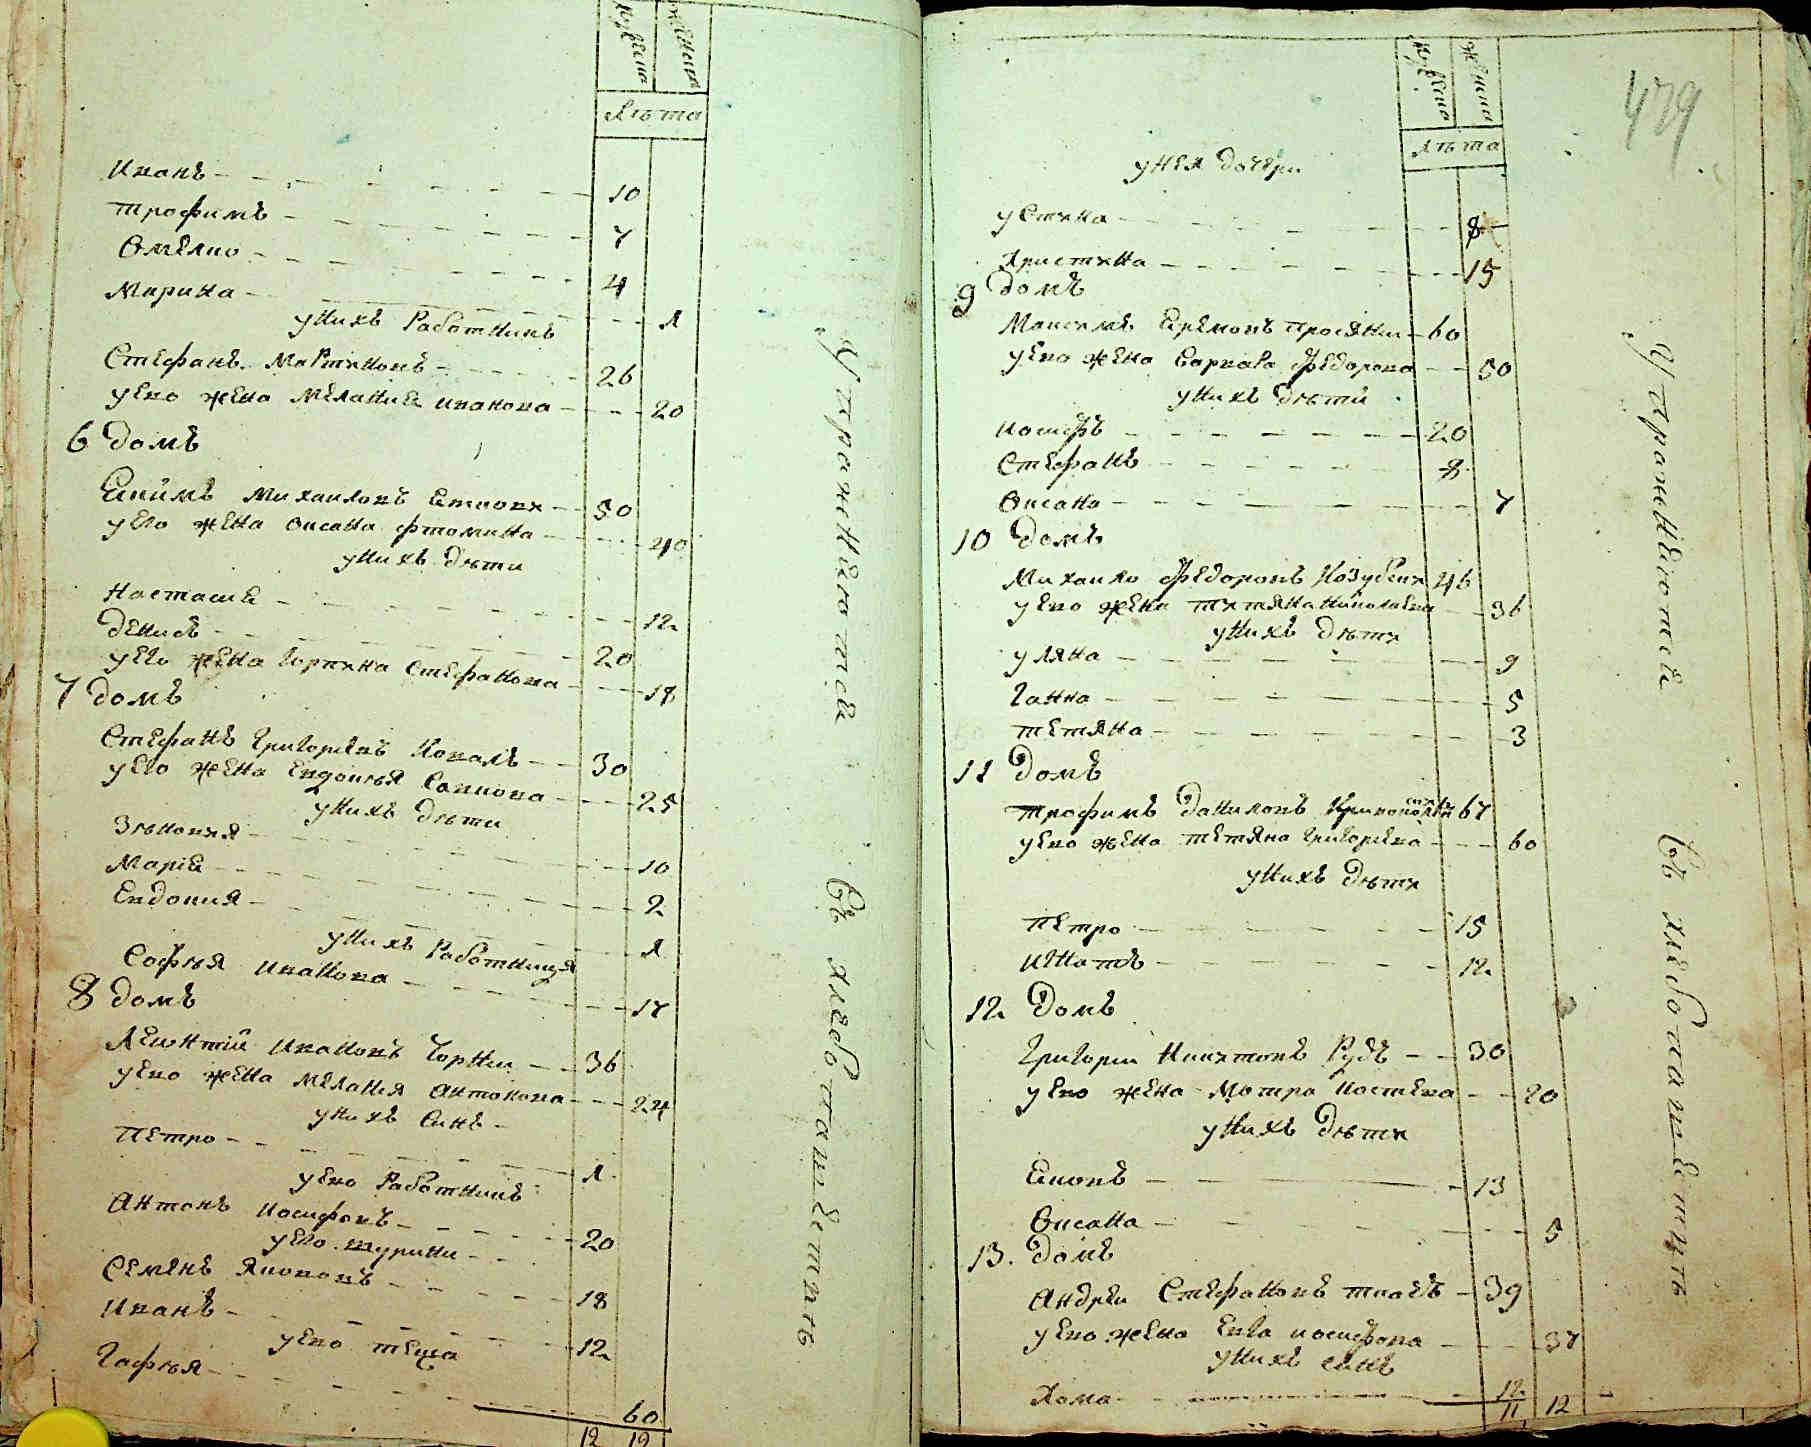 мужеска женска
лѣта
Иванъ 10
Трофимъ 7
Омелко 4
Марина 1
у нихъ работникъ
Стефанъ Мартиновъ 26
у его жена Меланиа Иванова 20
6 домъ
Михаиловъ 50
у его жена Оксана 40
у нихъ дѣти
Настасиа 12
Денисъ 20
у его жена Горпина Стефанова 18
7 домъ
Стефанъ Григориевъ Коваль 30
у его жена Евдокия 25
у нихъ дѣти
Зѣновия 10
Мариа 2
Евдокия 1
у нихъ работница
София Иванова 17
8 домъ
Леонтий Ивановъ Чорний 36
у его жена Мелания Антонова 24
у нихъ синъ
Петро 1
у его работникъ
Антонъ Иосифовъ 20
у его шурини
Семенъ Якововъ 18
Иванъ 12
у его теща
Гафия 60
12 12
Упражнеются въ хлебопашествѣ
479
мужеска женска
лѣта
у нея дочери
Устина 8
Христина 15
9 домъ
Максимъ 60
у его жена Варвара Федорова 50
у нихъ дѣти
Иосифъ 20
Стефанъ 8
Оксана 7
10 домъ
Михаило Федоровъ 46
у его жена Тетяна Николаева 36
у нихъ дѣти
Уляна 9
Ганна 5
Тетяна 3
11 домъ
Трофимъ Даниловъ 67
у его жена Тетяна Григориева 60
у нихъ дѣти
Петро 15
Игнатъ 12
12 домъ
Григорий Никитовъ Рубъ 30
у его жена Мотра Костева 20
у нихъ дѣти
Яковъ 13
Оксана 5
13. домъ
Андрей Стефановъ Ткачъ 39
у его жена Евва Иосифова 37
у нихъ синъ
Хома 12
11 12
Упражнеются въ хлебопашествѣ